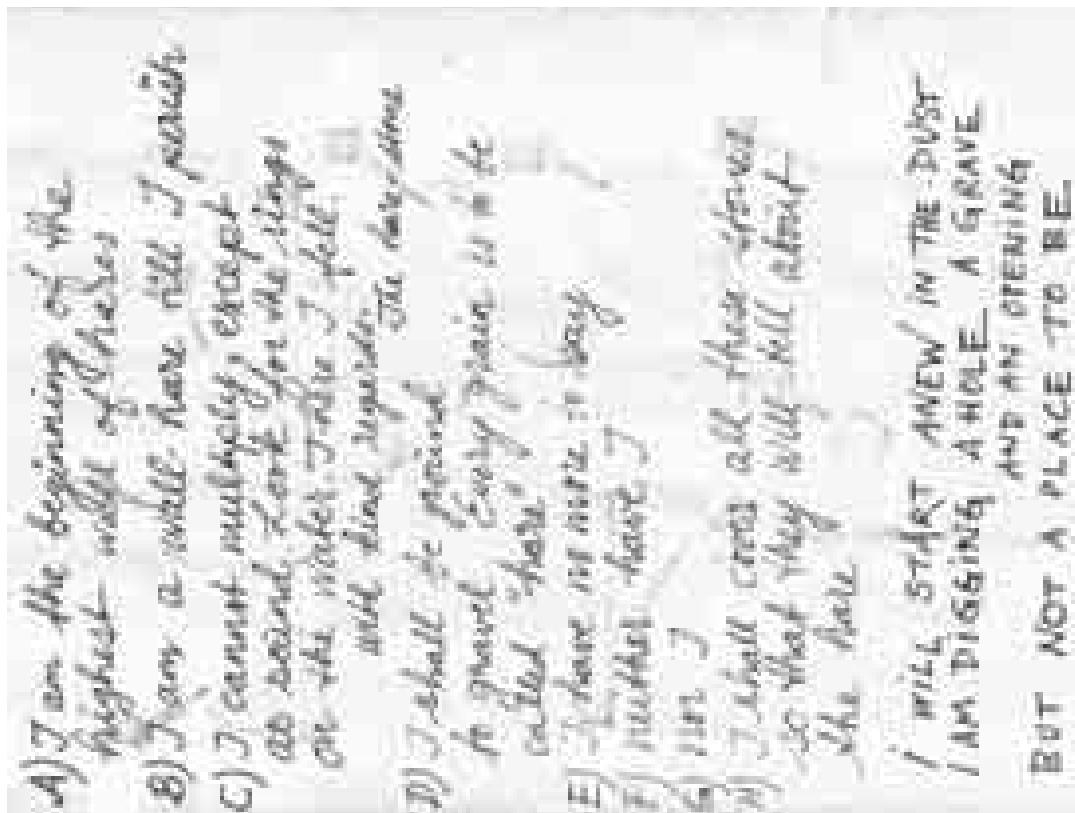 A) I am the beginning of the
highest walls of theses
B) I am a wall hare till I perish
C) I cannot multiply, except
as sound. Look for the rings
on the water. There I fell.
with kind regards.
The hare-some
D) I shall be ground
to gravel. Every grain is to be
called "hare"
E) I have no more to say
F) neither have I
G) nor I
H) I shall cross all these stones
so that they will tell about
the hare
I WILL START ANEW IN THE DUST
I AM DIGGING A HOLE A GRAVE
AND AN OPENING
BUT NOT A PLACE TO BE